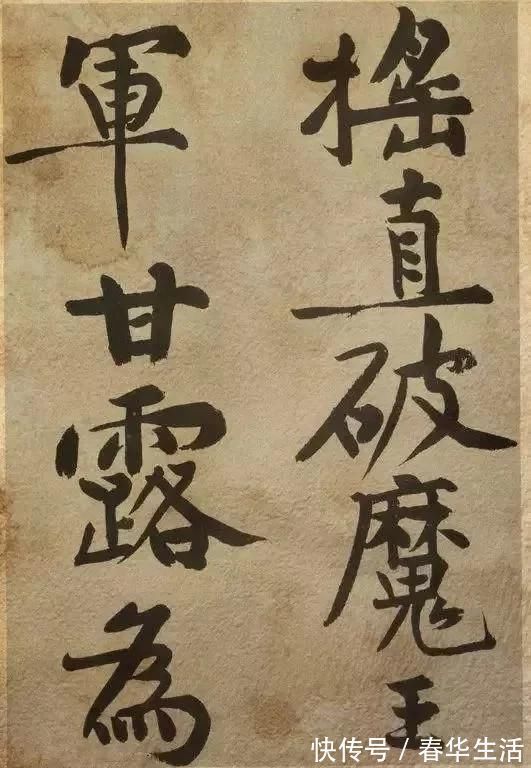 搖直破魔王
軍甘露為
快传号 / 春华生活